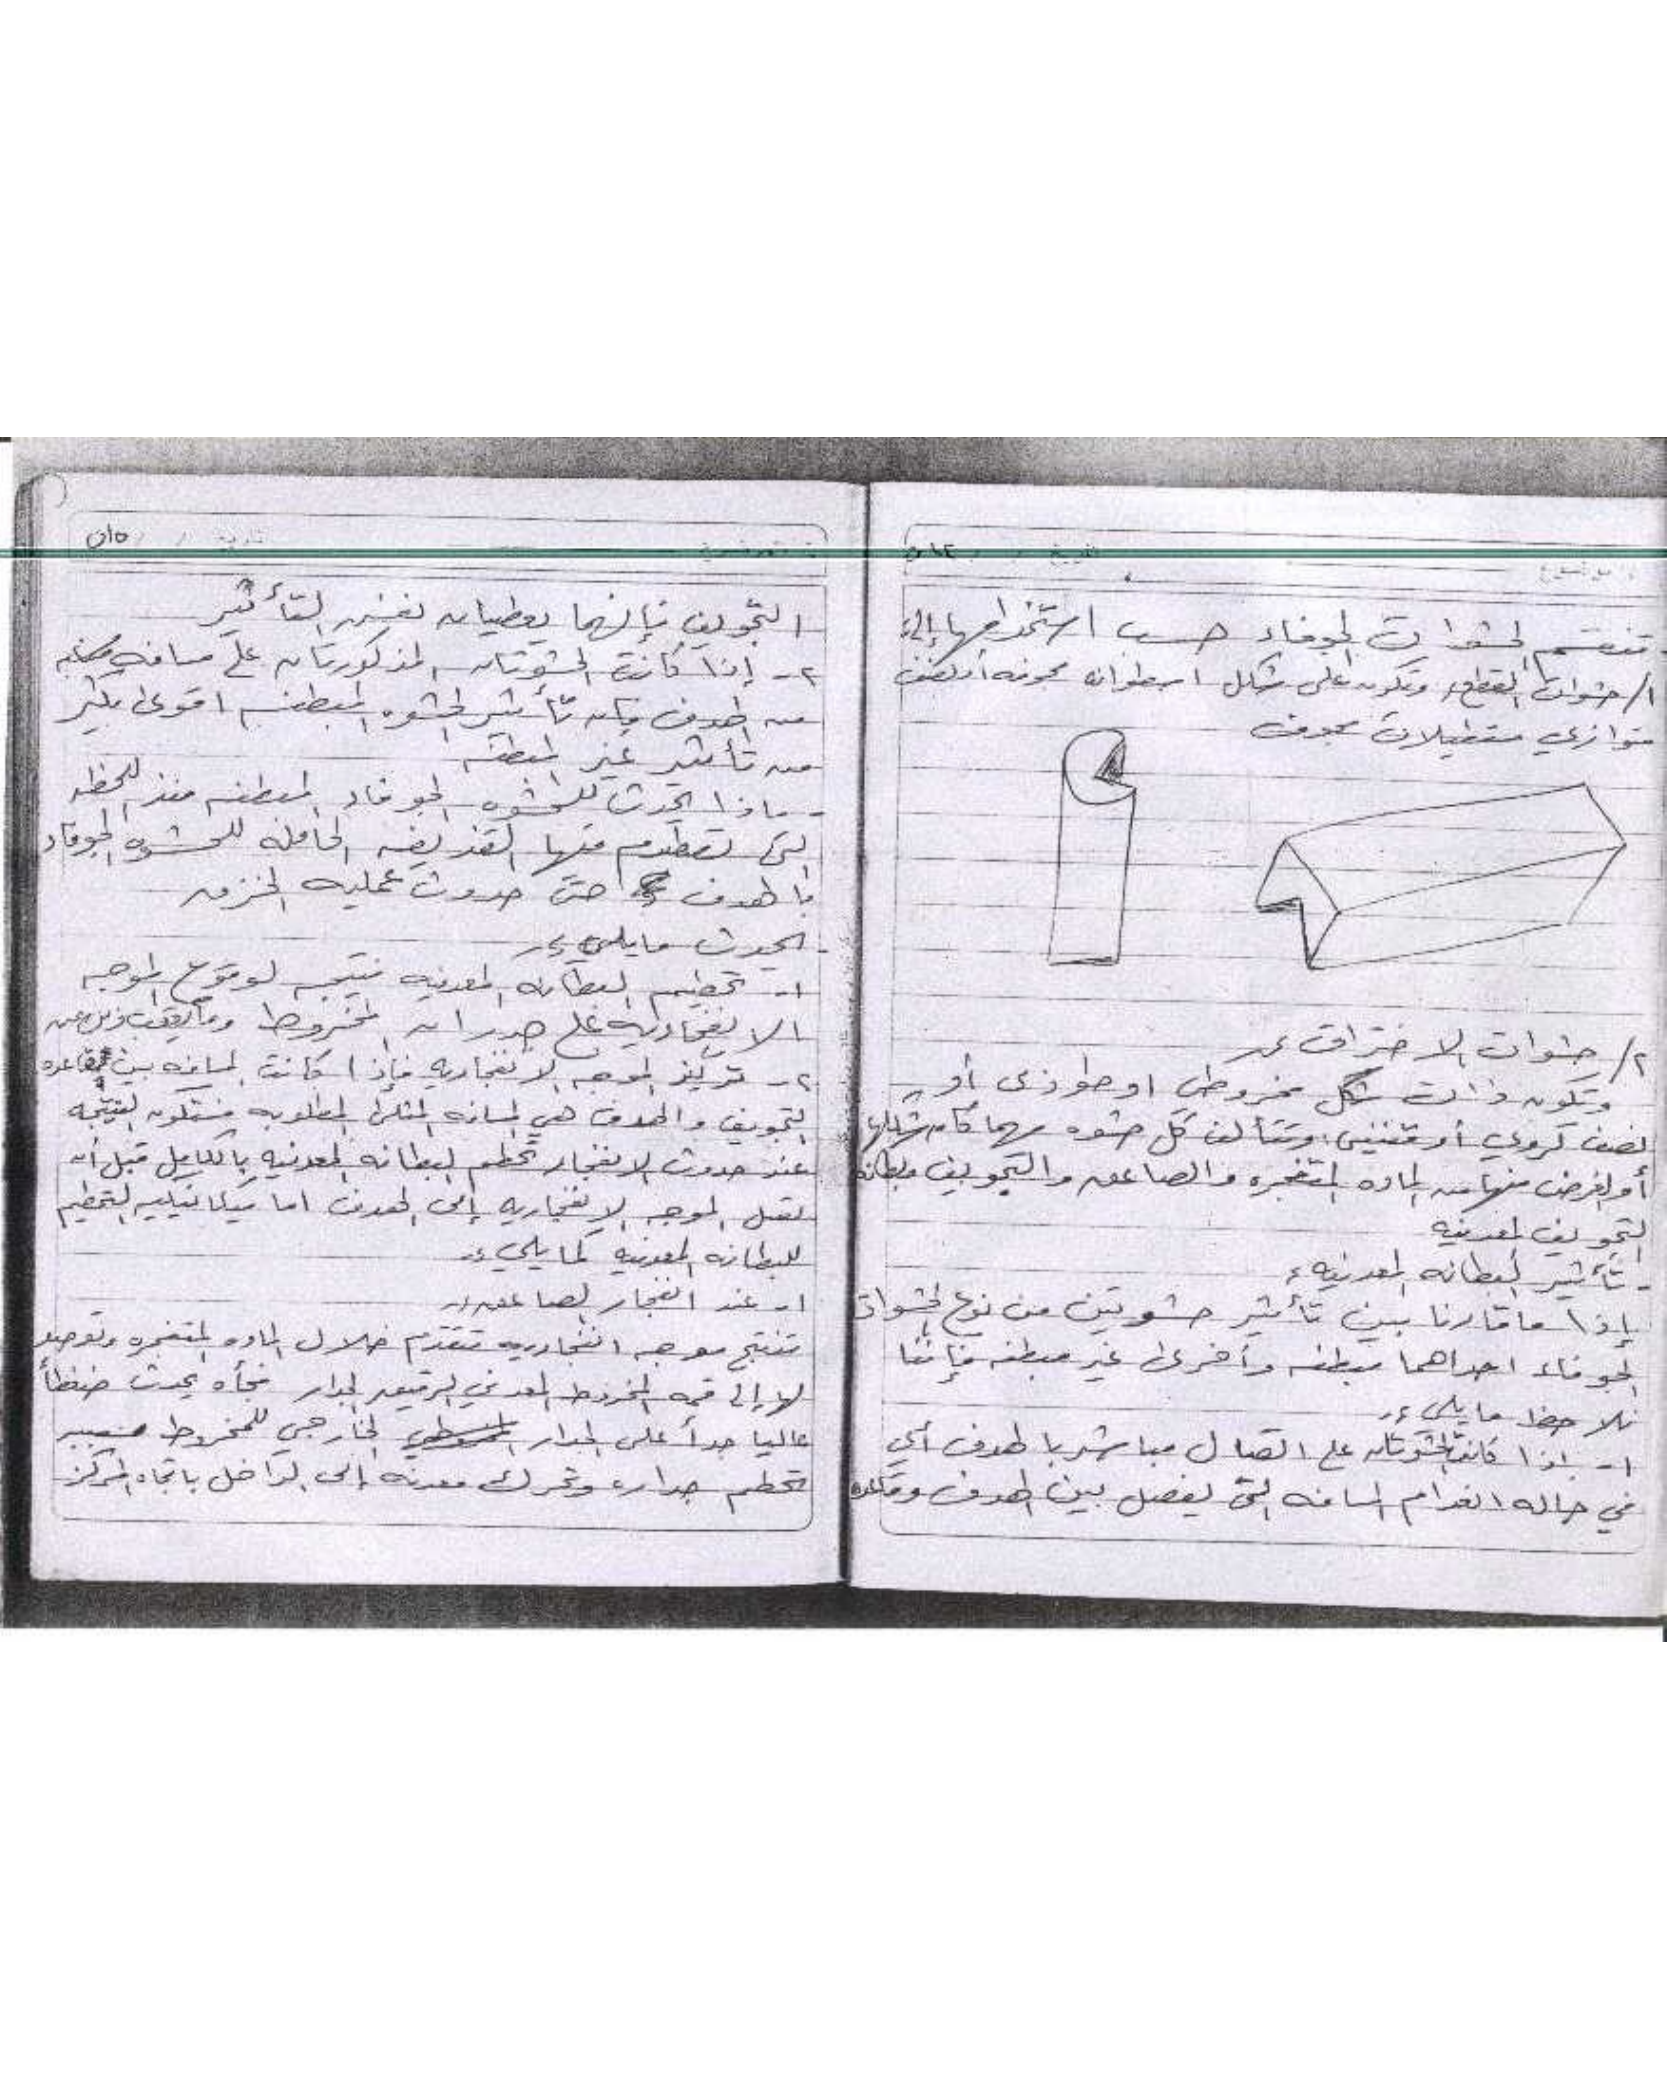 تنقسم الحشوات الجوفاء حسب استخدامها إلى
١/ حشوات القطع وتكون على شكل اسطوانه مجوفه أو نصف
متوازي مستطيلات مجوف
٢/ حشوات الاختراق
وتكون ذات شكل مخروطي او طوزى أو
نصف كروي أو وتتألف كل حشوه مهما كان شكلها
أو الغرض منها من الماده المتفجره والصاعق والتجويف وبطانة
التجويف المعدنيه
- تأثير البطانه المعدنيه
إذا ما قارنا بين تأثير حشوتين من نوع الحشوات
الجوفاء احداهما مبطنه وأخرى غير مبطنه فإننا
نلاحظ ما يلي
١- إذا كانت الحشوتان على اتصال مباشر با لهدف أي
في حاله انعدام المسافه التى يفصل بين الهدف وقاعده
ص١٥
التجويف فإنهما يعطيان نفس التأثير
٢- إذا كانت الحشوتان المذكورتان على مسافه
من الهدف فإن تأثير الحشوه المبطنه اقوى بكثير
من تأثير غير المبطنه
- ماذا يحدث للحشوه الجوفاء المبطنه منذ اللحظه
التى تصطدم فيها القذيفه الحامله للحشوه الجوفاء
با لهدف حتى حدوث عمليه الخزق
- يحدث ما يلي
١- تحطيم البطانه المعدنيه نتيجه لوقوع الموجه
الانفجاريه على جدران المخروط وما يعقب ذلك من
٢- تركيز الموجه الانفجاريه فإذا كانت المسافه بين قاعده
التجويف والهدف هي المسافه المثلى المطلوبه فستكون النتيجه
عند حدوث الانفجار تحطم البطانه المعدنيه بالكامل قبل أن
تصل الموجه الانفجاريه إلى الهدف اما ميكانيكيه التحطيم
للبطانه المعدنيه كما يلي
١- عند انفجار الصاعق
تنتج موجه انفجاريه تتقدم خلال الماده المتفجره ونوصو
لها إلى قمه المخروط المعدني الرقيق الجدار فجأه يحدث ضغطأ
عاليا جدأ على الجدار الخارجي للمخروط فيسبب
تحطم جداره وتحرك معدنه إلى الداخل باتجاه المركز